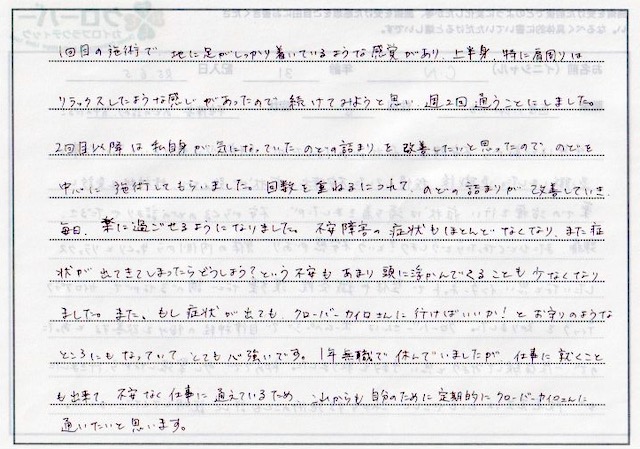 1回目の施術で 地に足がしっかり着いているような感覚があり、上半身、特に肩周りは
リラックスしたような感じがあったので、続けてみようと思い 週2回通うことにしました。
2回目以降は私自身が気になっていた のどの詰まりを改善したいと思ったので、のどを
中心に施術してもらいました。回数を重ねるにつれて、のどの詰まりが改善していき
毎日、楽に過ごせるようになりました。不安障害の症状もほとんどなくなり、また症
状が出てきてしまったらどうしよう?という不安もあまり頭に浮かんでくることも少なくなり
ました。また、もし症状が出ても、クローバーカイロさんに行けばいいか!とお守りのような
ところにもなっていて、とても心強いです。1年無職で休んでいましたが、仕事に就くこと
も出来て、不安なく仕事に通えているため、これからも自分のために定期的にクローバーカイロさんに
通いたいと思います。